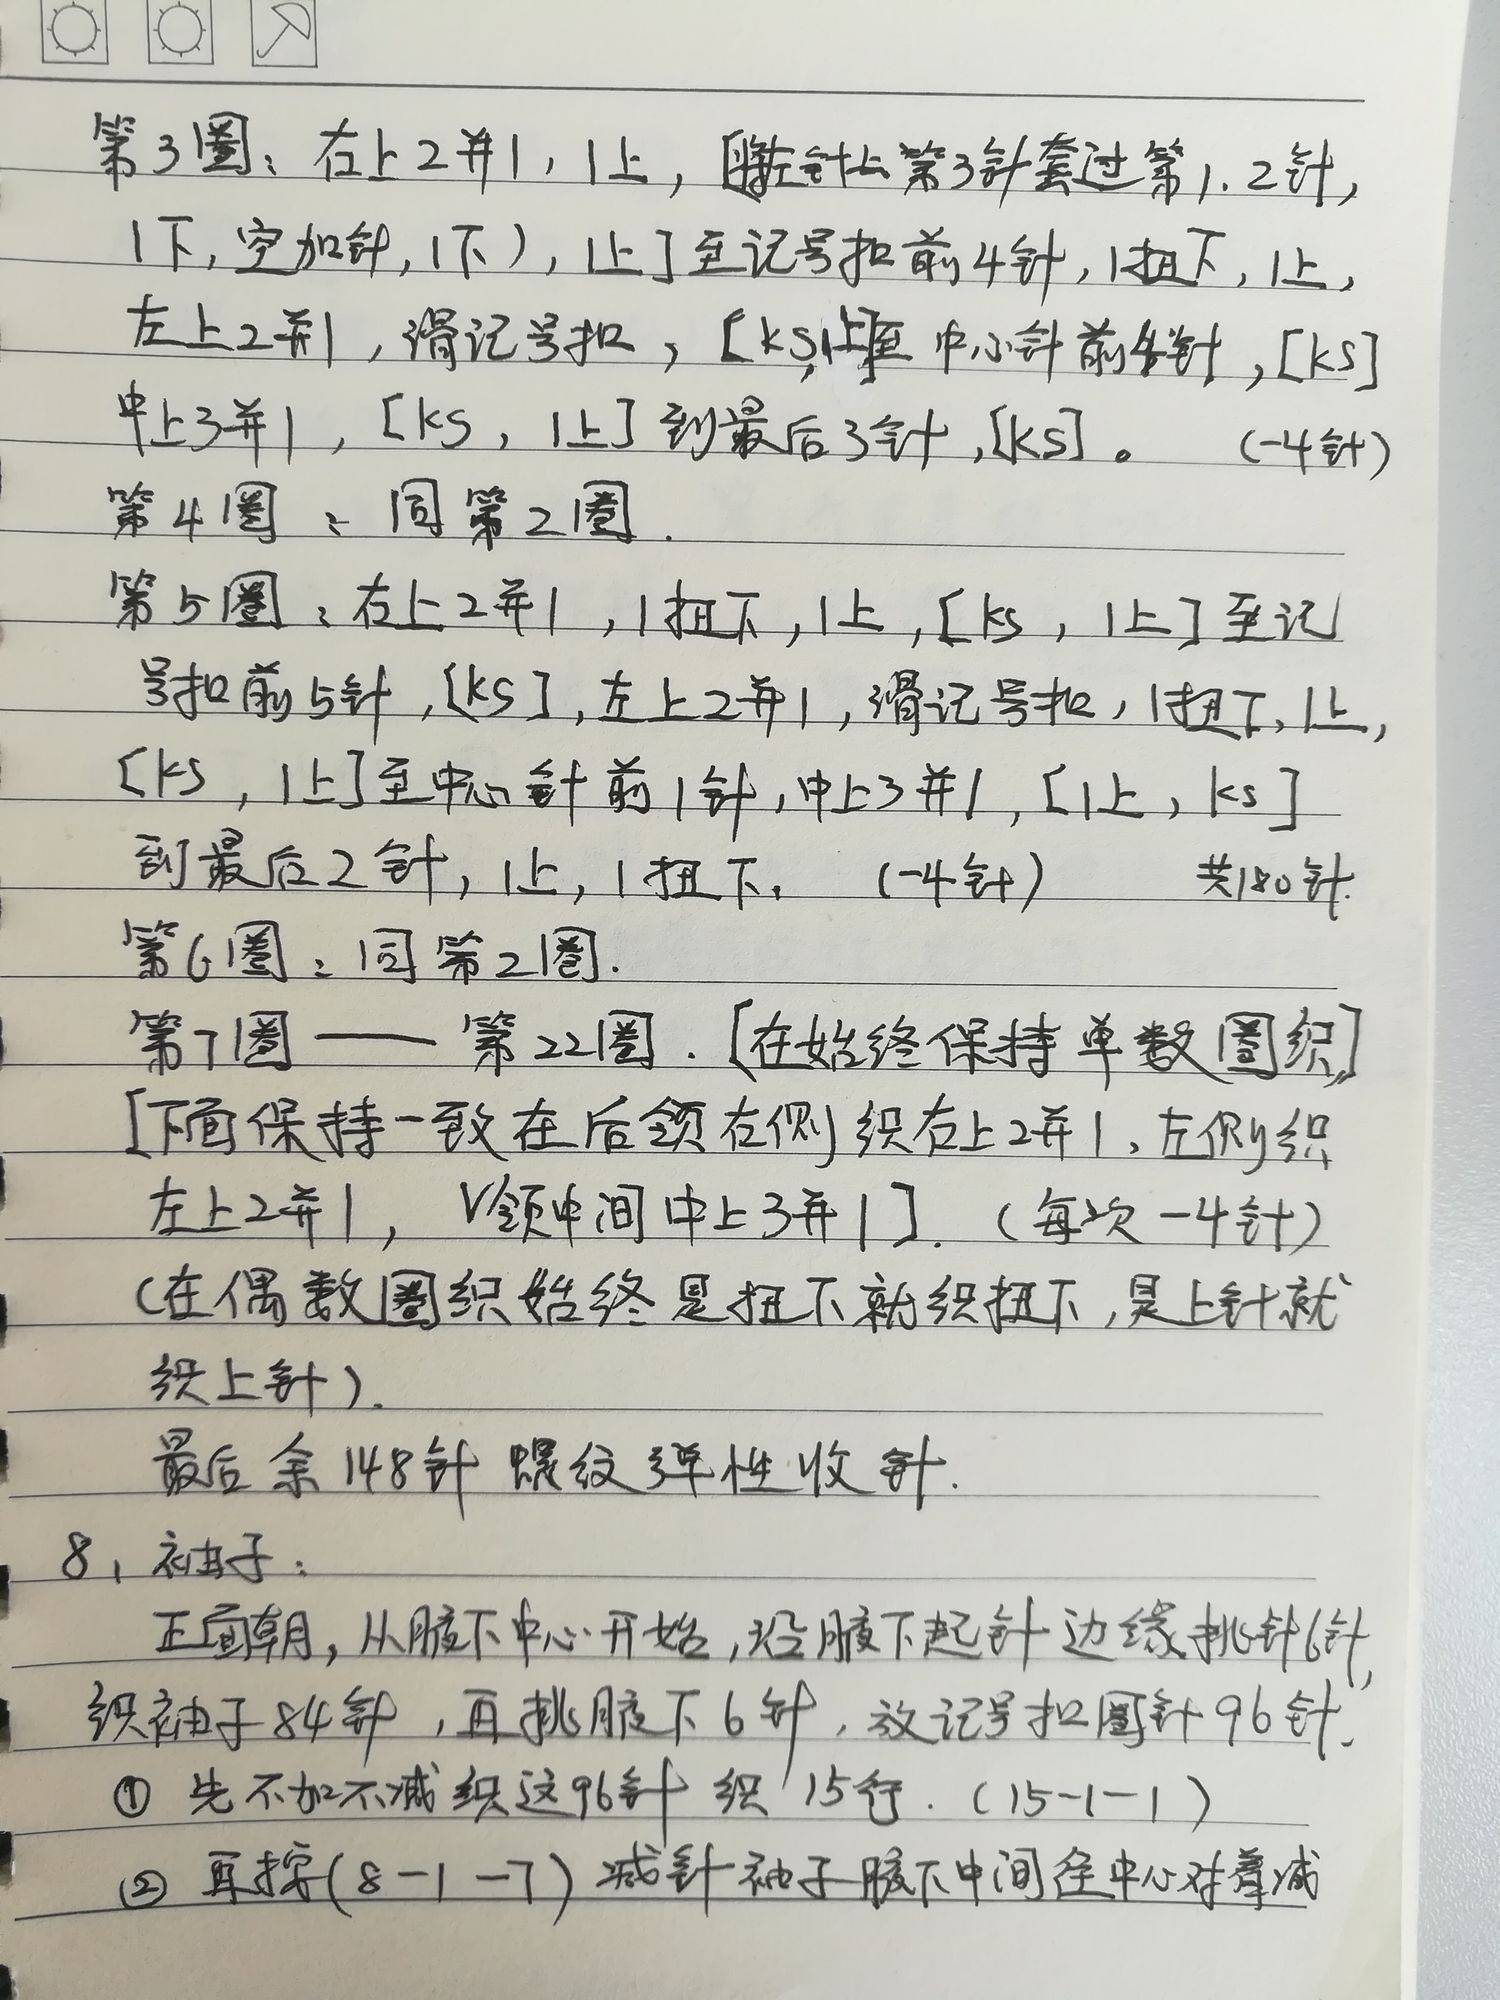 第3圈：右上2并1，1上，[(将左针上第3针套过第1.2针，
1下，空加针，1下)，1上]至记号扣前4针，1扭下，1上，
左上2并1，滑记号扣，[ks，1上]至中心针前4针，[ks]
中上3并1，[ks，1上]到最后3针，[ks]。 (-4针)
第4圈：同第2圈.
第5圈：右上2并1，1扭下，1上，[ks，1上]至记
号扣前5针，[ks]，左上2并1，滑记号扣，1扭下，1上，
[ks，1上]至中心针前1针，中上3并1，[1上，ks]
到最后2针，1上，1扭下。 (-4针) 共180针.
第6圈：同第2圈.
第7圈——第22圈.[在始终保持单数圈织]
[下面保持一致在后领右侧织右上2并1、左侧织
左上2并1， V领中间中上3并1].(每次-4针)
(在偶数圈织始终是扭下就织扭下，是上针就
织上针).
最后余148针 螺纹弹性收针.
8、袖子：
正面朝，从腋下中心开始，沿腋下起针边缘挑针6针，
织袖子84针，再挑腋下6针，放记号扣圈针96针、
① 先不加不减织这96针 织15行.(15-1-1)
② 再按(8-1-7)减针 袖子腋下中间在中心对着减